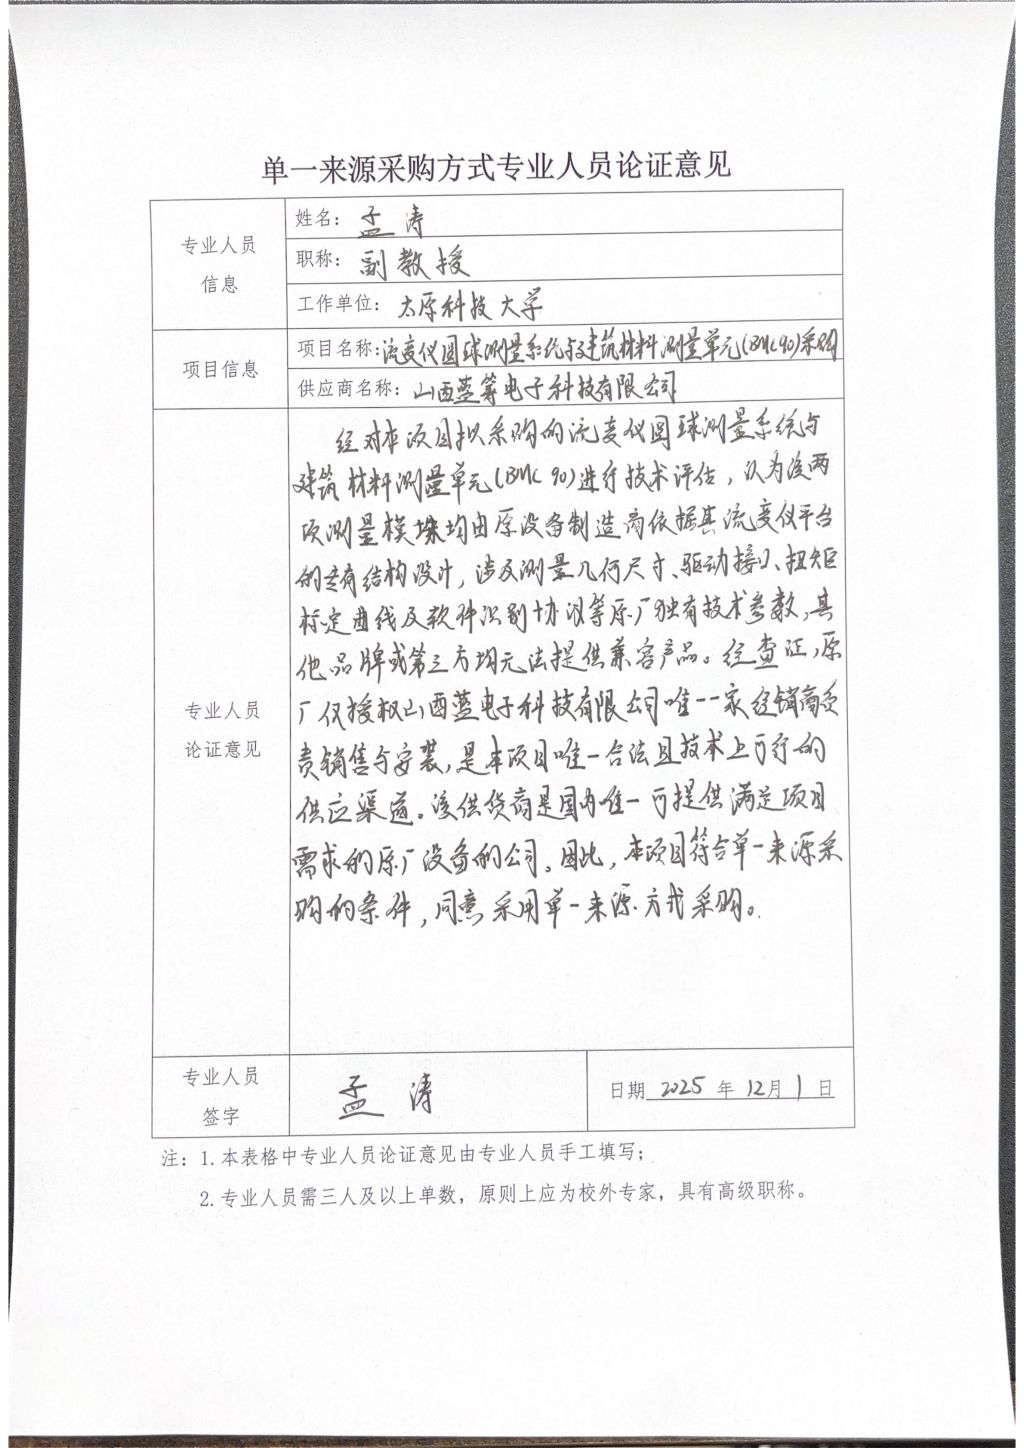 单一来源采购方式专业人员论证意见
专业人员
信息
姓名：孟涛
职称：副教授
工作单位：太原科技大学
项目信息
项目名称：流变仪圆球测量系统与建筑材料测量单元(BMC90)采购
供应商名称：山西蓝筹电子科技有限公司
专业人员
论证意见
经对本项目拟采购的流变仪圆球测量系统与
建筑材料测量单元(BMC 90)进行技术评估，认为该两
项测量模块均由原设备制造商依据其流变仪平台
的专有结构设计，涉及测量几何尺寸、驱动接口、扭矩
标定曲线及软件识别协议等原厂独有技术参数，其
他品牌或第三方均无法提供兼容产品。经查证，原
厂仅授权山西蓝电子科技有限公司唯一一家经销商负
责销售与安装，是本项目唯一合法且技术上可行的
供应渠道。该供货商是国内唯一可提供满足项目
需求的原厂设备的公司。因此，本项目符合单一来源采
购的条件，同意采用单一来源方式采购。
专业人员
签字
孟涛
日期 2025 年 12月 1 日
注：1.本表格中专业人员论证意见由专业人员手工填写；
2.专业人员需三人及以上单数，原则上应为校外专家，具有高级职称。